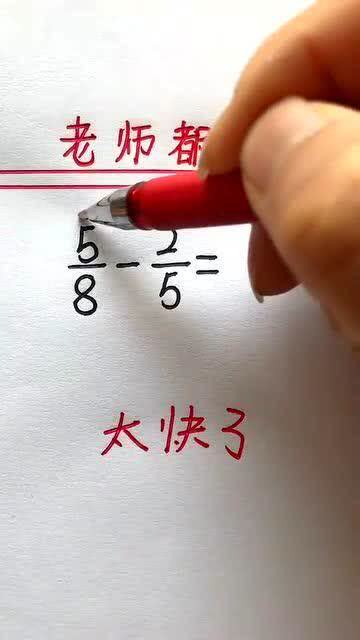 老师都
5/8 - 2/5 =
太快了